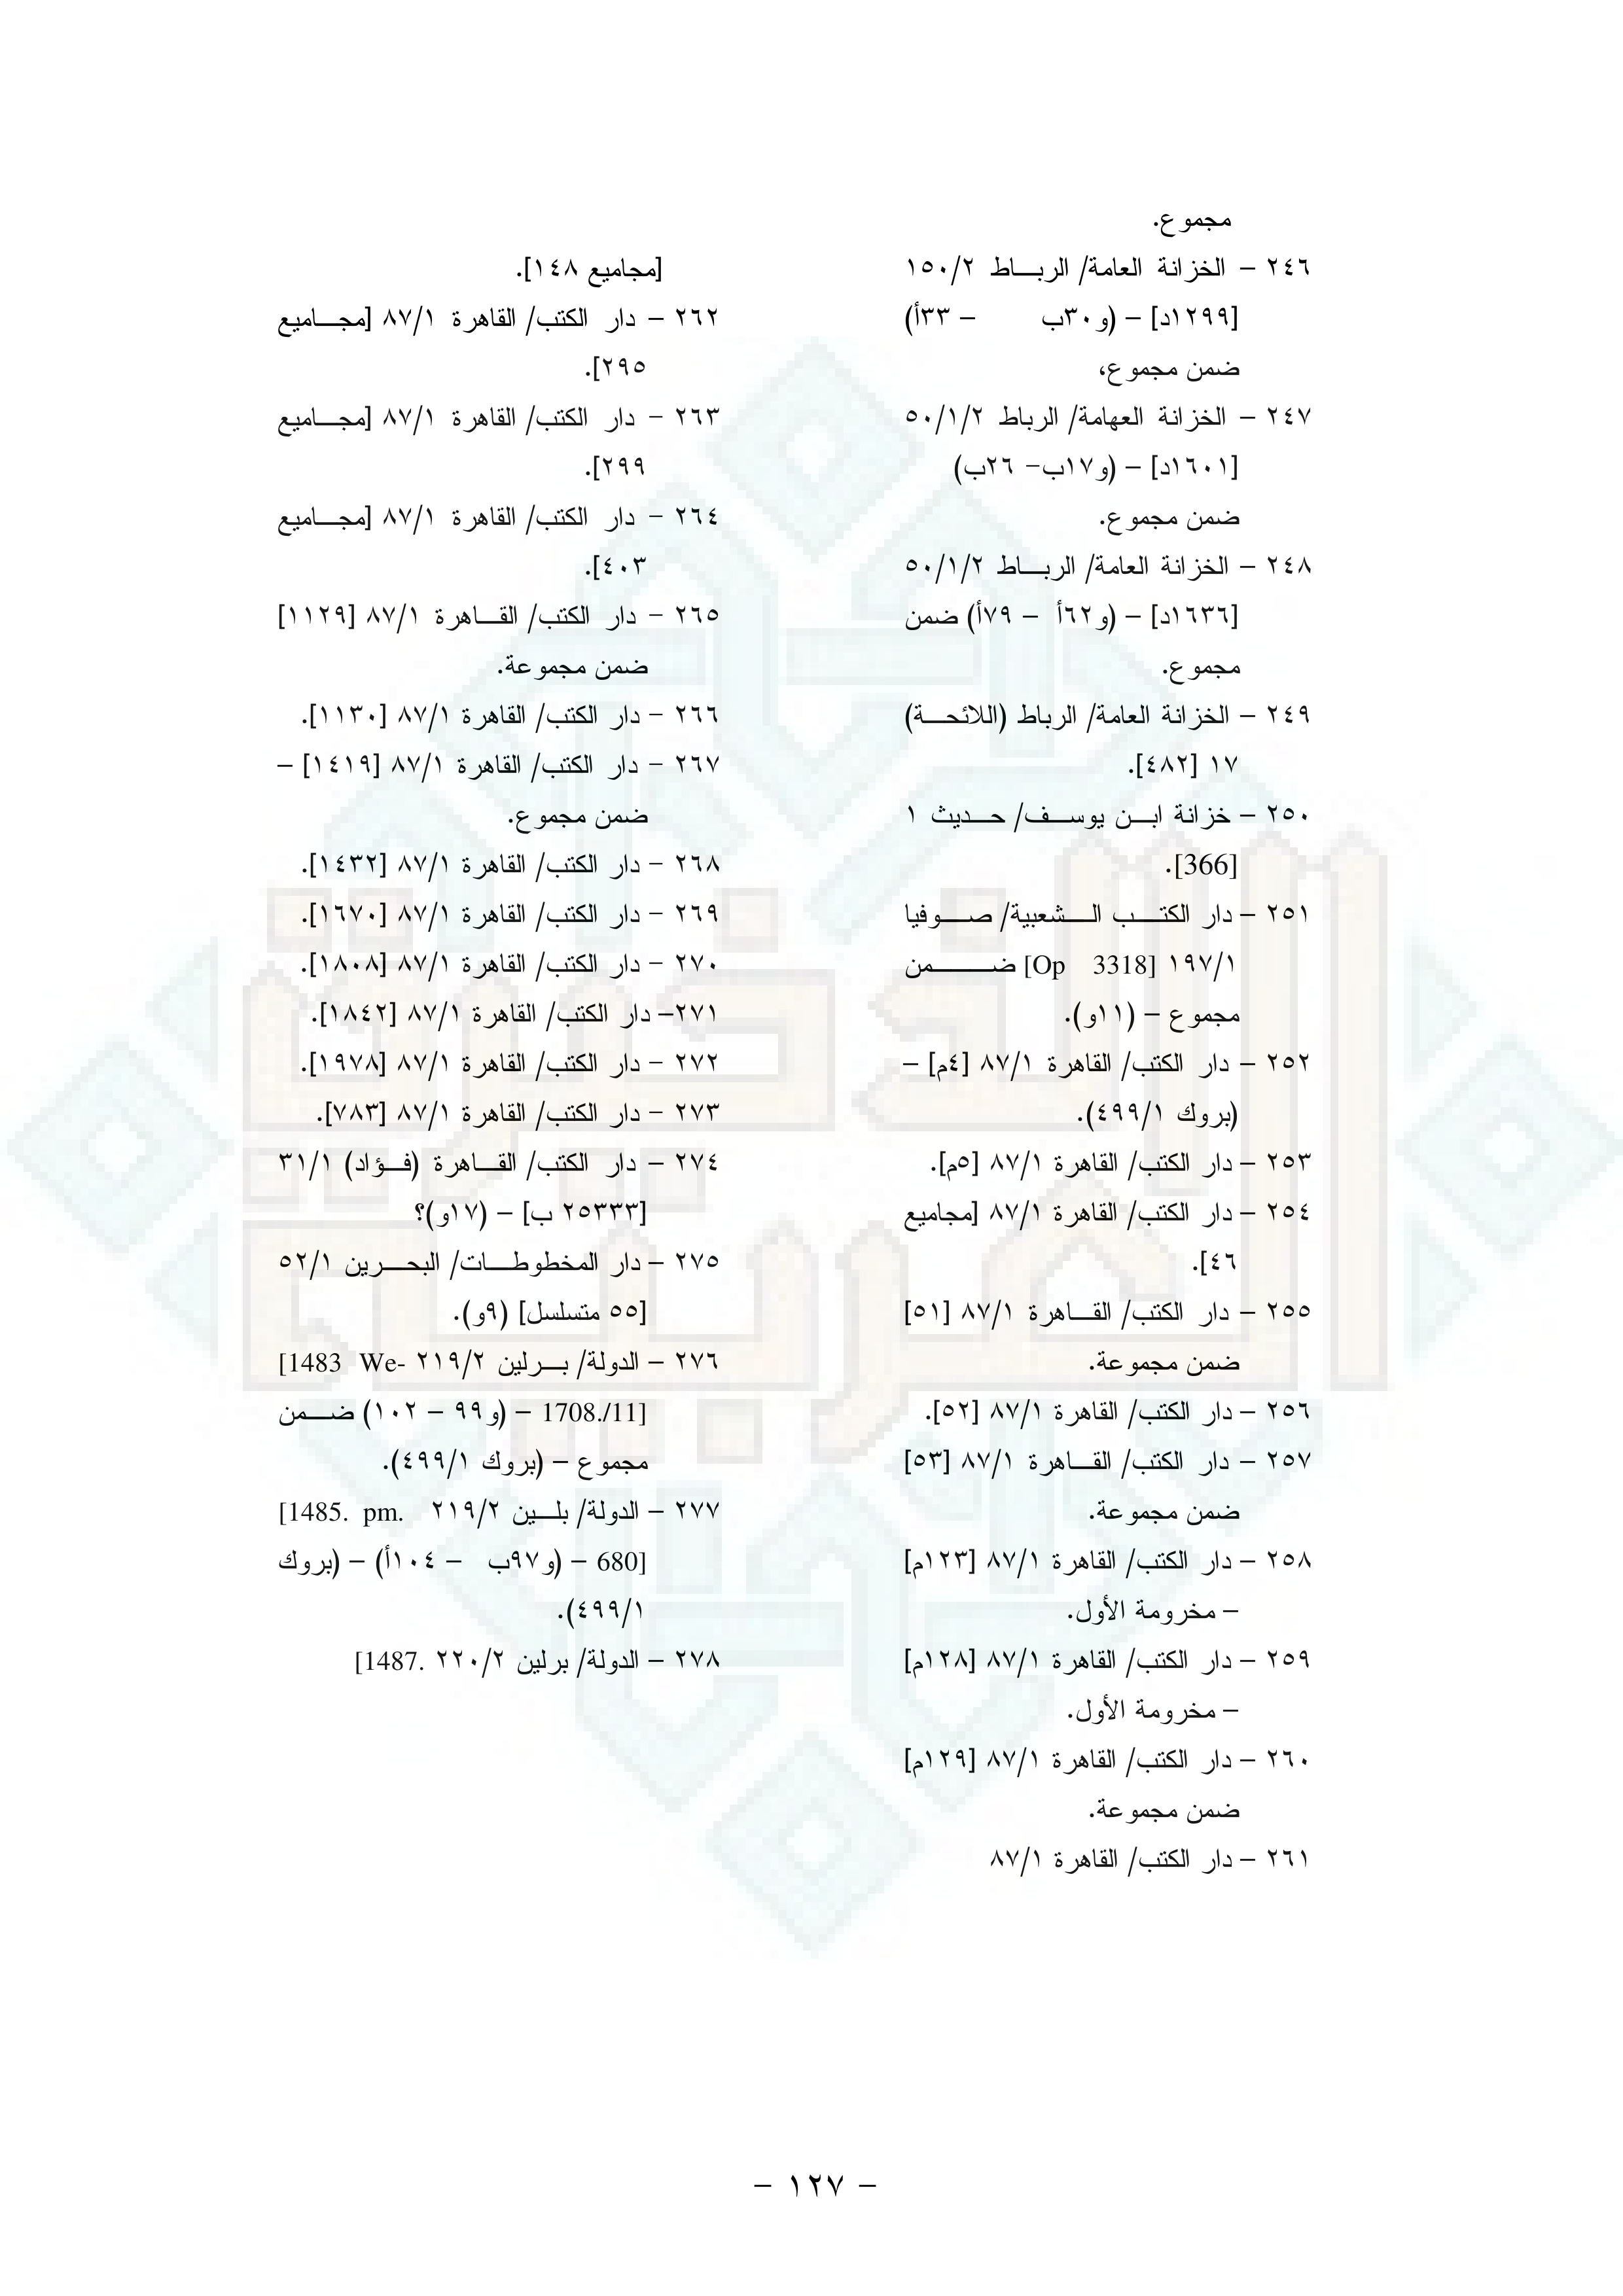 مجموع.
٢٤٦ – الخزانة العامة/ الرباط ١٥٠/٢
[١٢٩٩د] – (و٣٠ب – ٣٣أ)
ضمن مجموع،
٢٤٧ – الخزانة العهامة/ الرباط ٥٠/١/٢
[١٦٠١د] – (و١٧ب- ٢٦ب)
ضمن مجموع.
٢٤٨ – الخزانة العامة/ الرباط ٥٠/١/٢
[١٦٣٦د] – (و٦٢أ – ٧٩أ) ضمن
مجموع.
٢٤٩ – الخزانة العامة/ الرباط (اللائحة)
١٧ [٤٨٢].
٢٥٠ – خزانة ابن يوسف/ حديث ١
[366].
٢٥١ – دار الكتب الشعبية/ صوفيا
١٩٧/١ [Op 3318] ضمن
مجموع – (١١و).
٢٥٢ – دار الكتب/ القاهرة ٨٧/١ [٤م] –
(بروك ٤٩٩/١).
٢٥٣ – دار الكتب/ القاهرة ٨٧/١ [٥م].
٢٥٤ – دار الكتب/ القاهرة ٨٧/١ [مجاميع
٤٦].
٢٥٥ – دار الكتب/ القاهرة ٨٧/١ [٥١]
ضمن مجموعة.
٢٥٦ – دار الكتب/ القاهرة ٨٧/١ [٥٢].
٢٥٧ – دار الكتب/ القاهرة ٨٧/١ [٥٣]
ضمن مجموعة.
٢٥٨ – دار الكتب/ القاهرة ٨٧/١ [١٢٣م]
– مخرومة الأول.
٢٥٩ – دار الكتب/ القاهرة ٨٧/١ [١٢٨م]
– مخرومة الأول.
٢٦٠ – دار الكتب/ القاهرة ٨٧/١ [١٢٩م]
ضمن مجموعة.
٢٦١ – دار الكتب/ القاهرة ٨٧/١
[مجاميع ١٤٨].
٢٦٢ – دار الكتب/ القاهرة ٨٧/١ [مجاميع
٢٩٥].
٢٦٣ – دار الكتب/ القاهرة ٨٧/١ [مجاميع
٢٩٩].
٢٦٤ – دار الكتب/ القاهرة ٨٧/١ [مجاميع
٤٠٣].
٢٦٥ – دار الكتب/ القاهرة ٨٧/١ [١١٢٩]
ضمن مجموعة.
٢٦٦ – دار الكتب/ القاهرة ٨٧/١ [١١٣٠].
٢٦٧ – دار الكتب/ القاهرة ٨٧/١ [١٤١٩] –
ضمن مجموع.
٢٦٨ – دار الكتب/ القاهرة ٨٧/١ [١٤٣٢].
٢٦٩ – دار الكتب/ القاهرة ٨٧/١ [١٦٧٠].
٢٧٠ – دار الكتب/ القاهرة ٨٧/١ [١٨٠٨].
٢٧١– دار الكتب/ القاهرة ٨٧/١ [١٨٤٢].
٢٧٢ – دار الكتب/ القاهرة ٨٧/١ [١٩٧٨].
٢٧٣ – دار الكتب/ القاهرة ٨٧/١ [٧٨٣].
٢٧٤ – دار الكتب/ القاهرة (فؤاد) ٣١/١
[٢٥٣٣٣ ب] – (١٧و)؟
٢٧٥ – دار المخطوطات/ البحرين ٥٢/١
[٥٥ متسلسل] (٩و).
٢٧٦ – الدولة/ برلين ٢١٩/٢ [1483 We-
1708./11] – (و٩٩ – ١٠٢) ضمن
مجموع – (بروك ٤٩٩/١).
٢٧٧ – الدولة/ بلين ٢١٩/٢ [1485. pm.
680] – (و٩٧ب – ١٠٤أ) – (بروك
٤٩٩/١).
٢٧٨ – الدولة/ برلين ٢٢٠/٢ [1487.
– ١٢٧ –